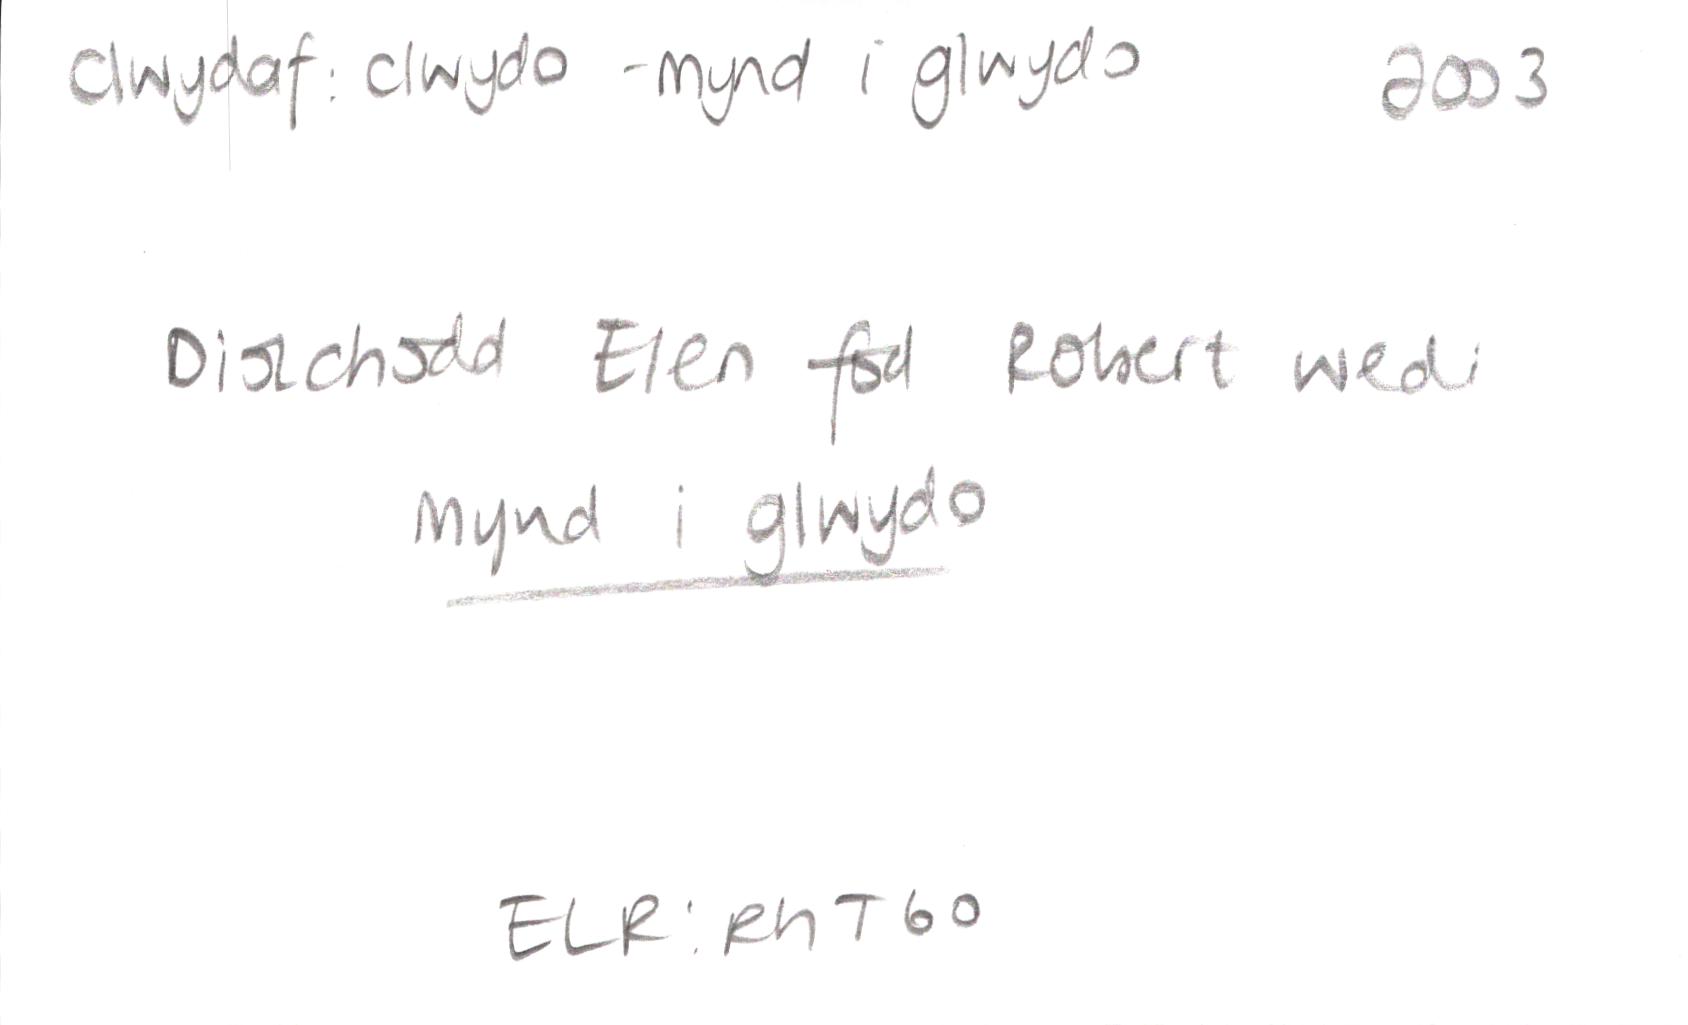 Clwydaf: clwydo - mynd i glwydo 2003
Diolchodd Elen fod Robert wedi
mynd i glwydo
ELR: RhT 60